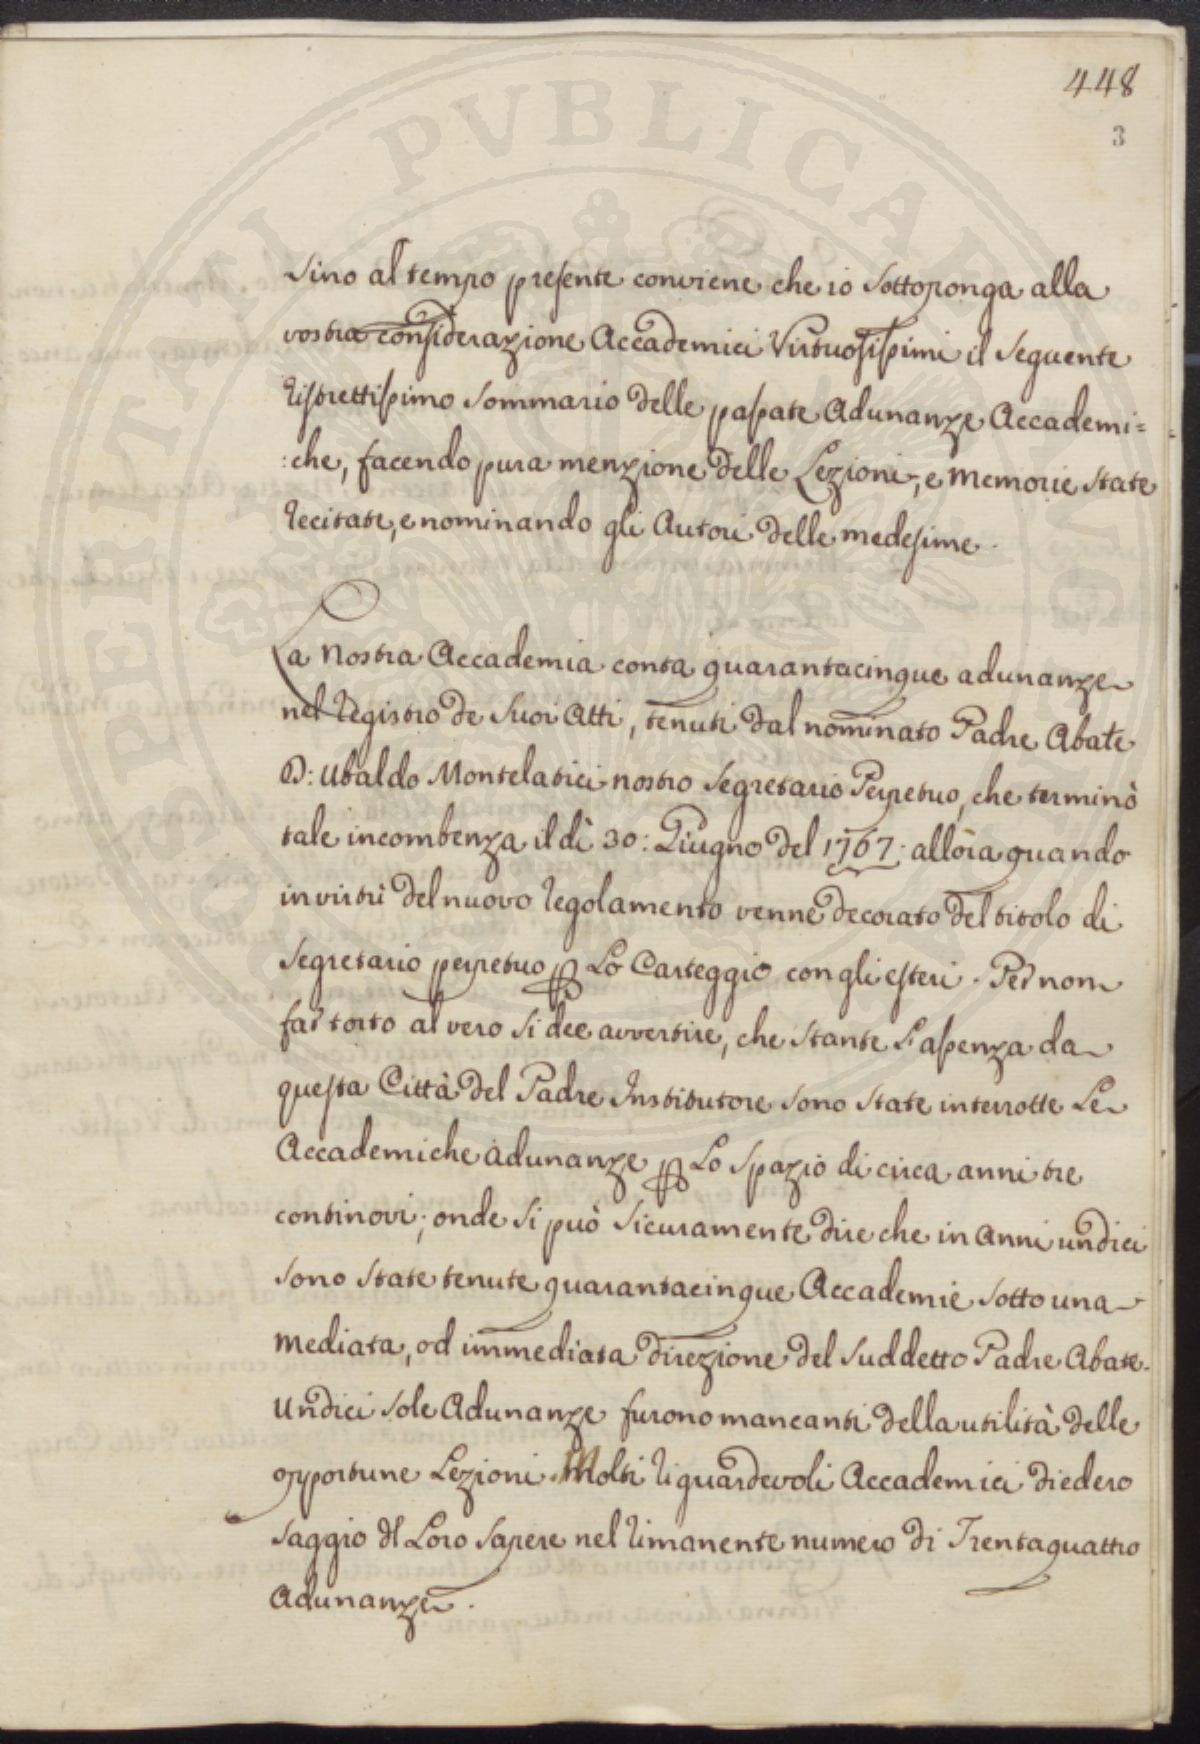 448
3
sino al tempo presente conviene che io sottoponga alla
vostra considerazione Accademici Virtuosissimi il seguente
ristrettissimo sommario delle passate Adunanze Accademi=
:che, facendo pura menzione delle Lezioni, e memorie state
recitate, e nominando gli Autori delle medesime.
La nostra Accademia conta quarantacinque adunanze
nel registro de suoi Atti, tenuti dal nominato Padre Abate
D: Ubaldo Montelatici nostro Segretario Perpetuo, che terminò
tale incombenza il dì 30: Giugno del 1767: allora quando
in virtù del nuovo regolamento venne decorato del titolo di
Segretario perpetuo p Lo Carteggio con gli esteri. Per non
far torto al vero si dee avvertire, che stante L'assenza da
questa Città del Padre Institutore sono state interrotte Le
Accademiche adunanze p Lo spazio di circa anni tre
continovi; onde si può sicuramente dire che in anni undici
sono state tenute quarantacinque Accademie sotto una
mediata, od immediata direzione del suddetto Padre Abate.
Undici sole Adunanze furono mancanti della utilità delle
opportune Lezioni. Molti riguardevoli Accademici diedero
saggio dl Loro sapere nel rimanente numero di Trentaquattro
Adunanze.
SOSPITATI PUBLICAE